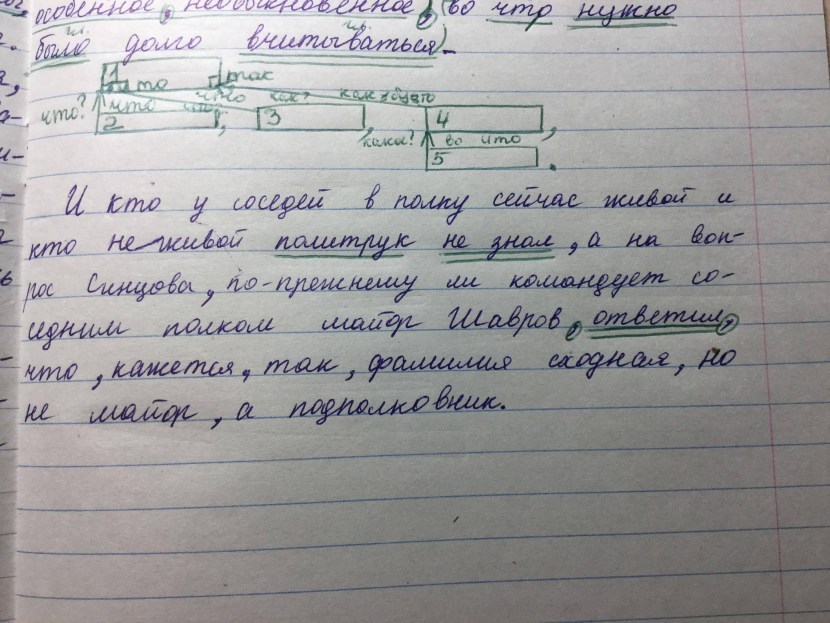 особенное, необыкновенное, (во что нужно
было долго вчитываться)
1 так
что?
2, 3, 4,
какое? во что
5.
И кто у соседей в полку сейчас живой и
кто не живой политрук не знал, а на воп-
рос Синцова, по-прежнему ли командует со-
седним полком майор Шавров, ответил,
что, кажется, так, фамилия сходная, но
не майор, а подполковник.